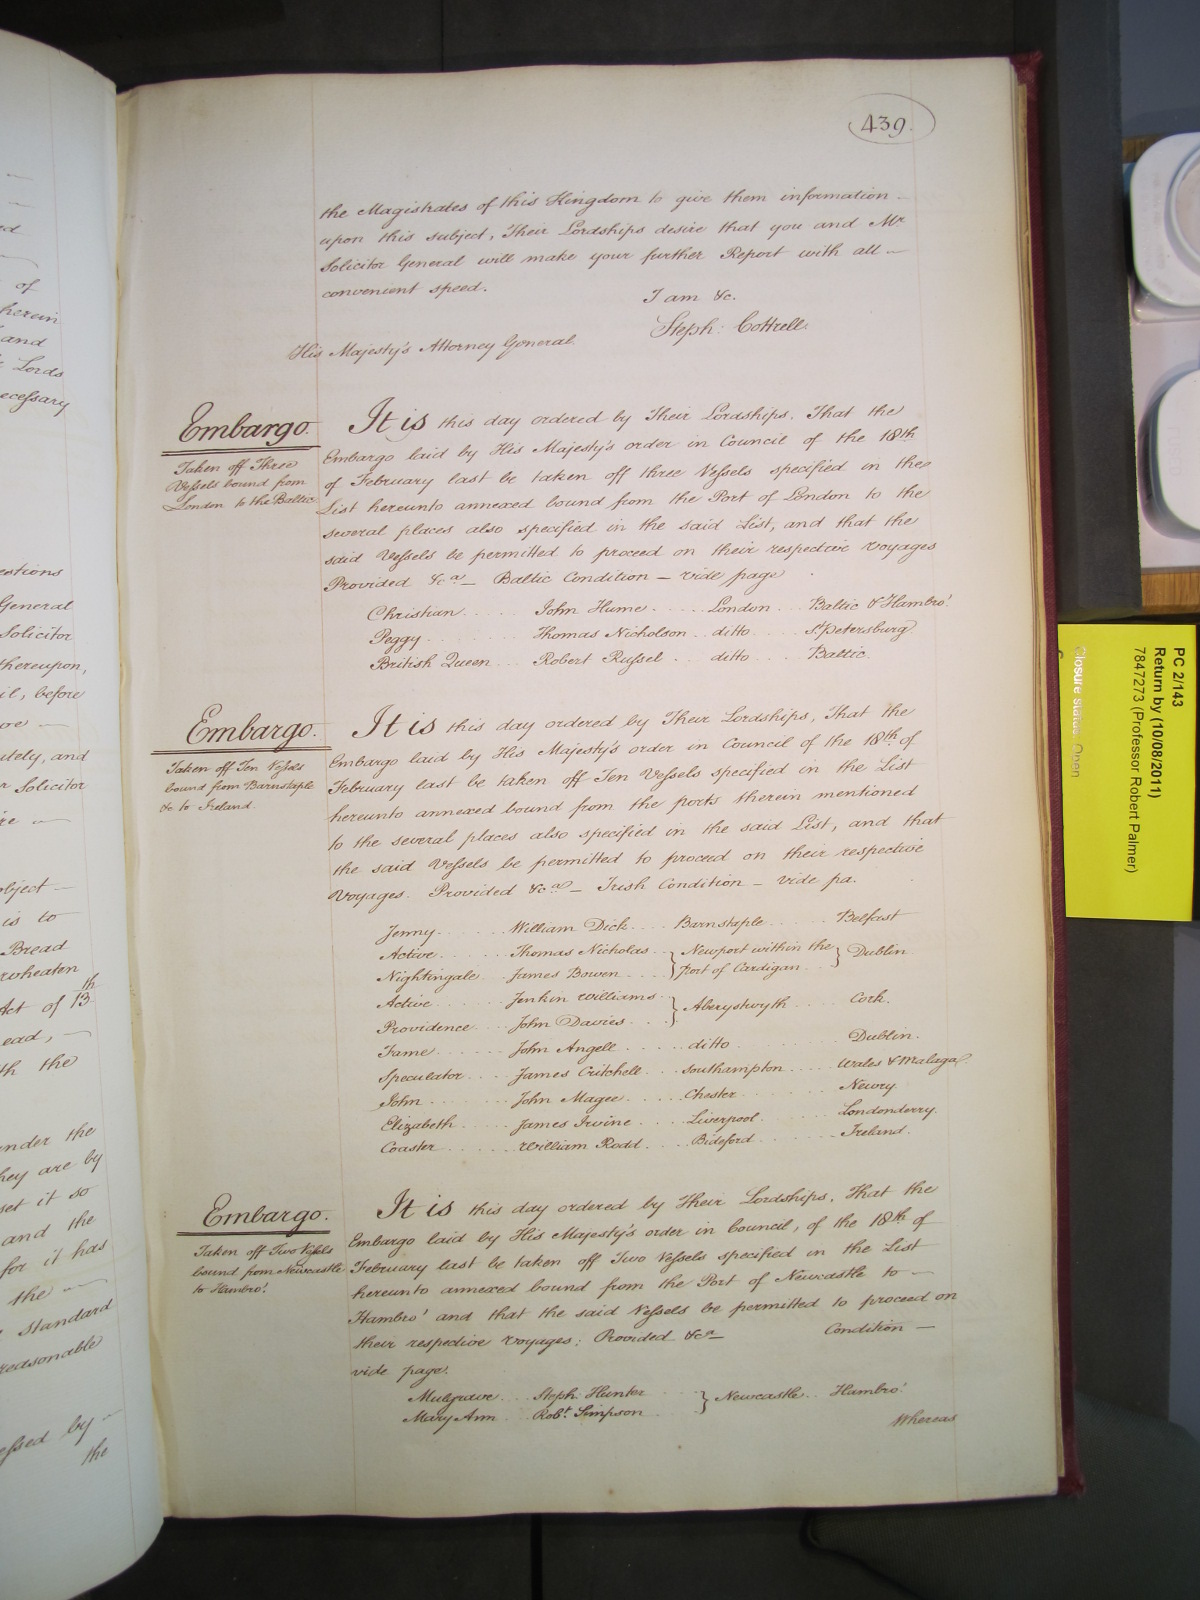 439.
the Magistrates of this Kingdom to give them information
upon this subject, Their Lordships desire that you and Mr
Solicitor General will make your further Report with all
convenient speed.
I am &c.
Steph: Cottrell.
His Majesty's Attorney General.
Embargo.
Taken off Three
Vessels bound from
London to the Baltic.
It is this day ordered by Their Lordships, That the
Embargo laid by His Majesty's order in Council of the 18th
of February last be taken off three Vessels specified in the
List hereunto annexed bound from the Port of London to the
several places also specified in the said List, and that the
said Vessels be permitted to proceed on their respective voyages
Provided &ca — Baltic Condition — vide page
Christian John Hume London Baltic & Hambro'
Peggy Thomas Nicholson ditto St Petersburg
British Queen Robert Russel ditto Baltic
Embargo.
Taken off Ten Vessels
bound from Barnstaple
&c to Ireland.
It is this day ordered by Their Lordships, That the
Embargo laid by His Majesty's order in Council of the 18th of
February last be taken off Ten Vessels specified in the List
hereunto annexed bound from the ports therein mentioned
to the several places also specified in the said List, and that
the said Vessels be permitted to proceed on their respective
Voyages. Provided &ca — Irish Condition — vide pa.
Jenny William Dick Barnstaple Belfast
Active Thomas Nicholas } Newport within the } Dublin
Nightingale James Bowen } Port of Cardigan
Active Jenkin Williams } Aberystwyth Cork.
Providence John Davies
Fame John Angell ditto Dublin.
Speculator James Critchell Southampton Wales & Malaga
John John Magee Chester Newry
Elizabeth James Irvine Liverpool Londonderry.
Coaster William Rodd Bideford Ireland.
Embargo.
Taken off Two Vessels
bound from Newcastle
to Hambro'.
It is this day ordered by Their Lordships, That the
Embargo laid by His Majesty's order in Council, of the 18th of
February last be taken off Two Vessels specified in the List
hereunto annexed bound from the Port of Newcastle to —
Hambro' and that the said Vessels be permitted to proceed on
their respective voyages; Provided &ca — Condition —
vide page.
Mulgrave Steph: Hunter } Newcastle Hambro'.
Mary Ann Robt Simpson
Whereas
of
herein
and
Lords
ecessary
estions
General
Solicitor
thereupon,
il, before
itely, and
r Solicitor
object —
is to
Bread
wheaten
Act of 13th
ead, —
th the
under the
hey are by
set it so
and the
for it has
the —
Standard
reasonable
essed by —
the
PC 2/143
Return by (10/08/2011)
7847273 (Professor Robert Palmer)
Closure status: Open